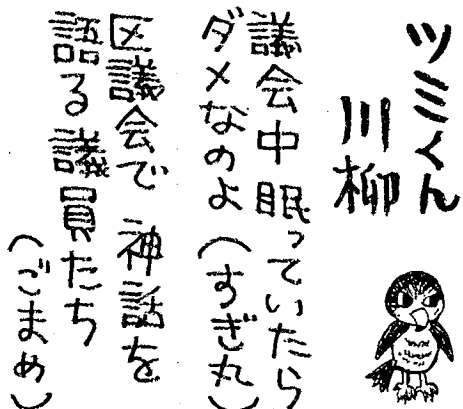 ツミくん
川柳
議会中 眠っていたら
ダメなのよ（すぎ丸）
区議会で 神話を
語る議員たち
（ごまめ）